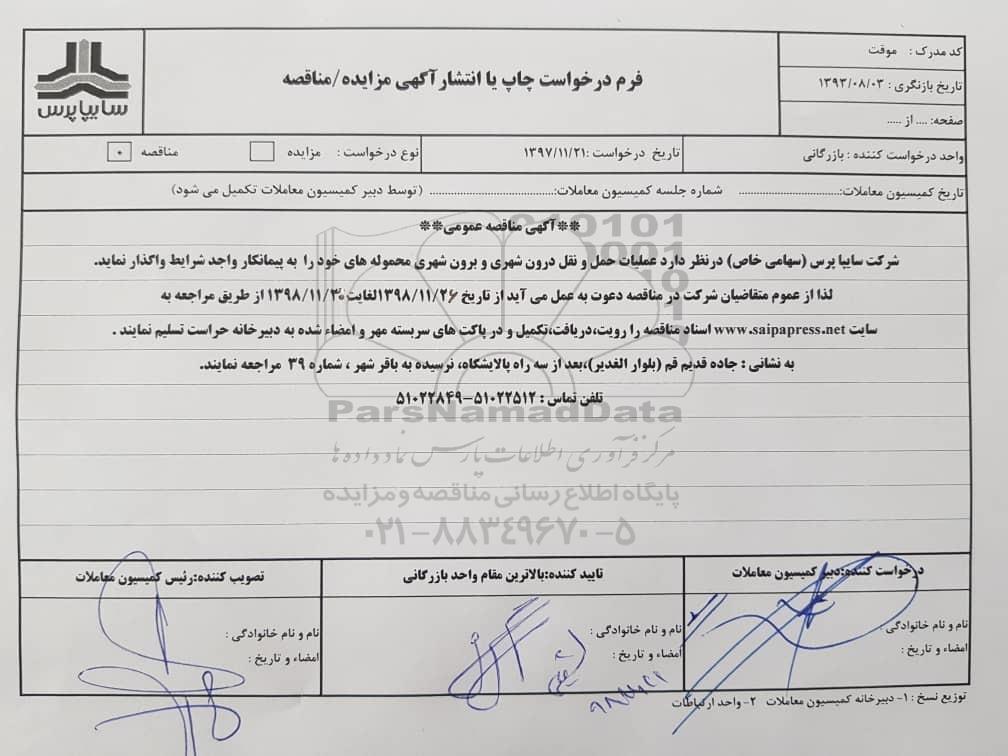 سایپاپرس
فرم درخواست چاپ یا انتشار آگهی مزایده/مناقصه
کد مدرک : موقت
تاریخ بازنگری : ۱۳۹۳/۰۸/۰۳
صفحه: .... از .....
واحد درخواست کننده : بازرگانی
تاریخ درخواست :۱۳۹۷/۱۱/۲۱
نوع درخواست : مزایده مناقصه
تاریخ کمیسیون معاملات:.................................... شماره جلسه کمیسیون معاملات:............................................ (توسط دبیر کمیسیون معاملات تکمیل می شود)
**آگهی مناقصه عمومی**
شرکت سایپا پرس (سهامی خاص) درنظر دارد عملیات حمل و نقل درون شهری و برون شهری محموله های خود را به پیمانکار واجد شرایط واگذار نماید.
لذا از عموم متقاضیان شرکت در مناقصه دعوت به عمل می آید از تاریخ ۱۳۹۸/۱۱/۲۶لغایت۱۳۹۸/۱۱/۳۰ از طریق مراجعه به
سایت www.saipapress.net اسناد مناقصه را رویت،دریافت،تکمیل و در پاکت های سربسته مهر و امضاء شده به دبیرخانه حراست تسلیم نمایند .
به نشانی : جاده قدیم قم (بلوار الغدیر)،بعد از سه راه پالایشگاه، نرسیده به باقر شهر ، شماره ۳۹ مراجعه نمایند.
تلفن تماس : ۵۱۰۲۲۵۱۲-۵۱۰۲۲۸۴۹
ParsNamadData
مرکز فرآوری اطلاعات پارس نماد داده ها
پایگاه اطلاع رسانی مناقصه و مزایده
۰۲۱-۸۸۳۴۹۶۷۰-۵
درخواست کننده:دبیر کمیسیون معاملات
نام و نام خانوادگی :
امضاء و تاریخ :
تایید کننده:بالاترین مقام واحد بازرگانی
نام و نام خانوادگی :
امضاء و تاریخ :
تصویب کننده:رئیس کمیسیون معاملات
نام و نام خانوادگی :
امضاء و تاریخ :
توزیع نسخ : ۱- دبیرخانه کمیسیون معاملات ۲- واحد ارتباطات